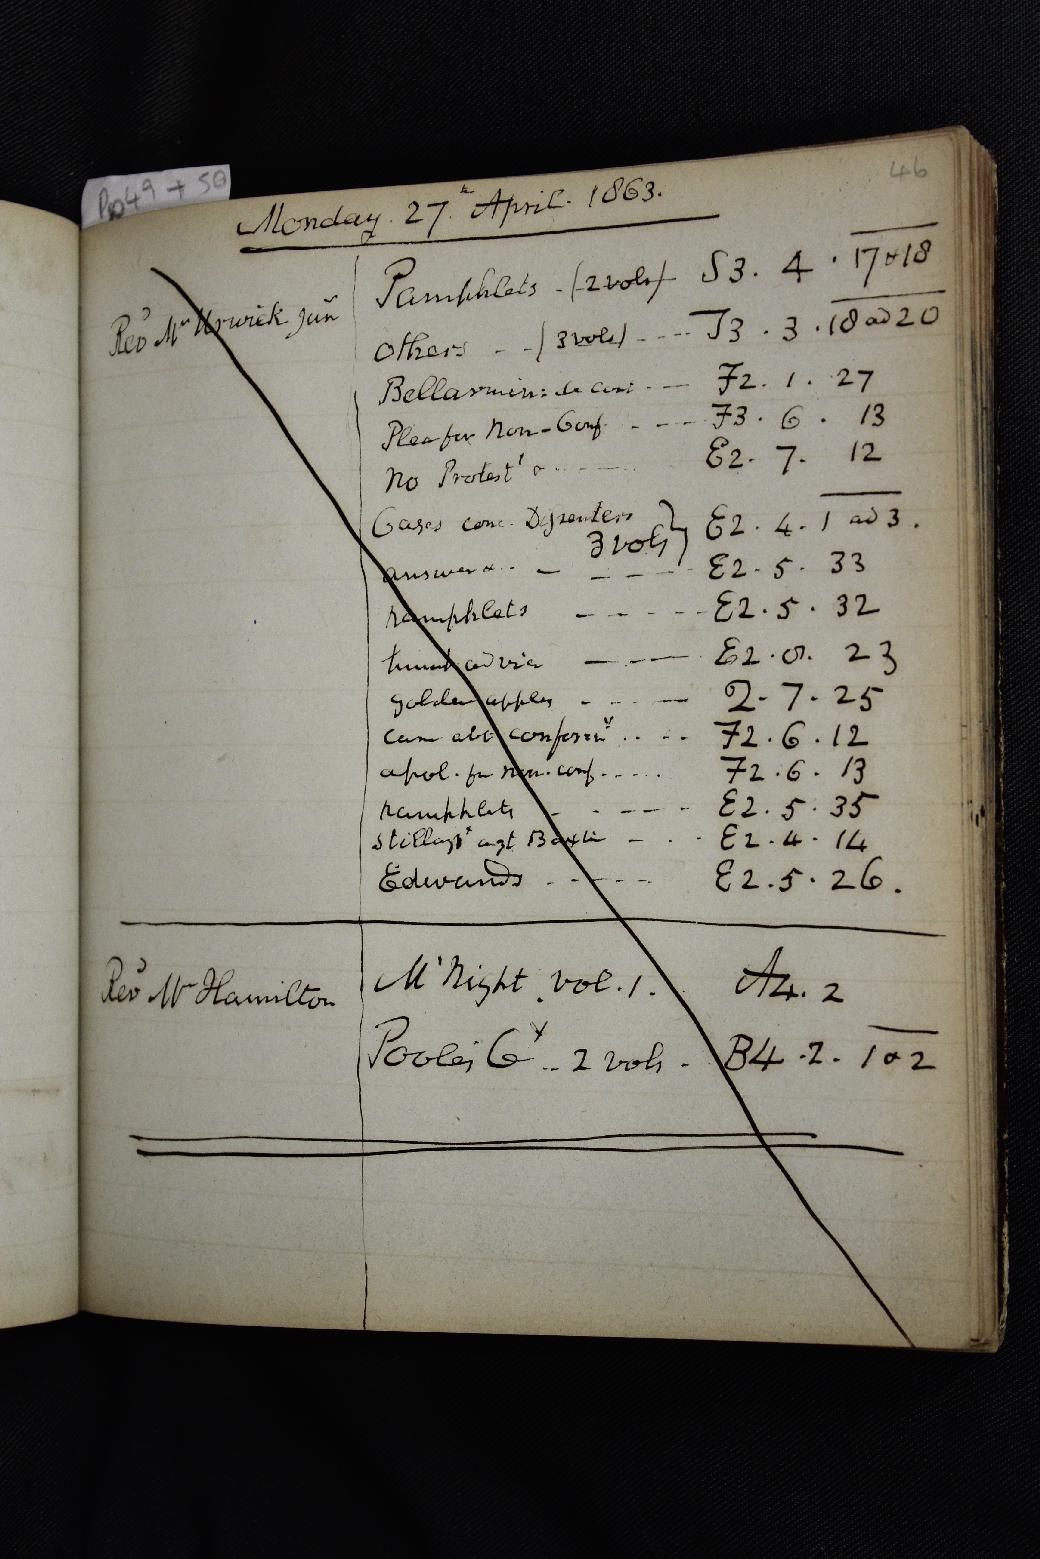 Pp 49 + 50
46
Monday. 27th April. 1863.
Revd Mr Urwick Junr
Pamphlets - (2 vols) S3. 4. 17 & 18
Others - - (3 vols) - - - T3. 3. 18 ad 20
Bellarmin: de - - - F2. 1. 27
Plea for Non-Conf - - - - F3. 6. 13
No Protestt & - - - - E2. 7. 12
Cases conc. Dissenters } E2. 4. 1 ad 3.
3 vols
answer & - - - - - E2. 5. 33
pamphlets - - - - - E2. 5. 32
advice - - - - E2. 23
golden apples - - - - - 2. 7. 25
abt conformy . . . . F2. 6. 12
apol. for non-conf. - - - - F2. 6. 13
pamphlets - - - - - E2. 5. 35
Stillingt agt Baxter - . . E2. 4. 14
Edwards - - - - - E2. 5. 26.
Revd Mr Hamilton
M'Night vol. 1. . A4. 2
Poole's 2 vols - B4. 2. 1 & 2